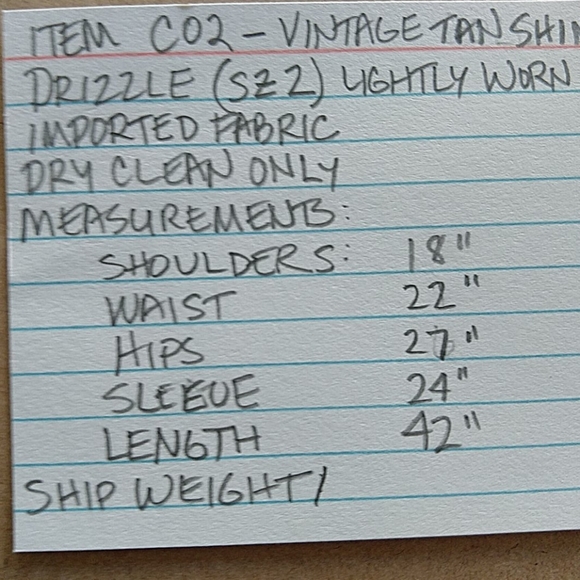 ITEM C02 - VINTAGE TAN SHIN
DRIZZLE (SZ 2) LIGHTLY WORN
IMPORTED FABRIC
DRY CLEAN ONLY
MEASUREMENTS:
SHOULDERS: 18"
WAIST 22"
HIPS 27"
SLEEVE 24"
LENGTH 42"
SHIP WEIGHT/